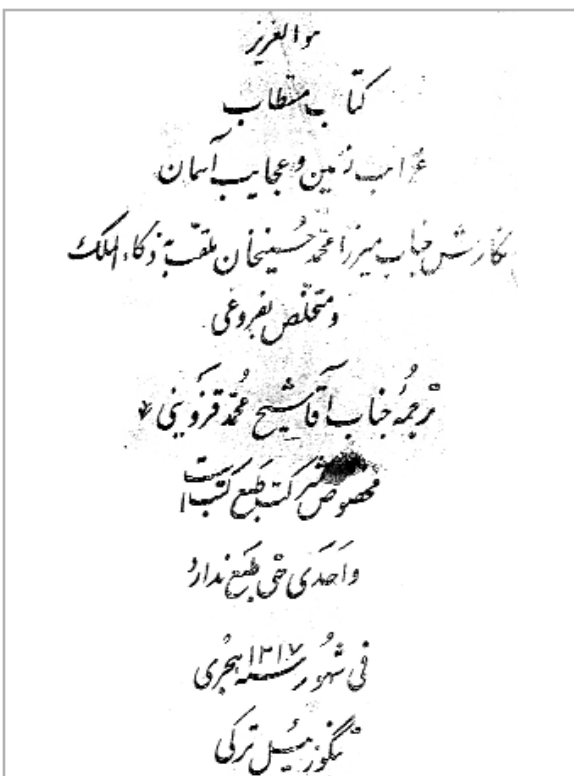 هوالعزیز
کتاب مستطاب
غرائب زمین و عجایب آسمان
نگارش جناب میرزا محمد حسینخان ملقب به ذکاء الملک
و متخلص بفروغی
ترجمهٔ جناب آقا شیخ محمد قزوینی
مخصوص شرکت طبع کتب است
و احدی حق طبع ندارد
فی شهور سنه ۱۳۱۷ هجری
تنگوزئیل ترکی